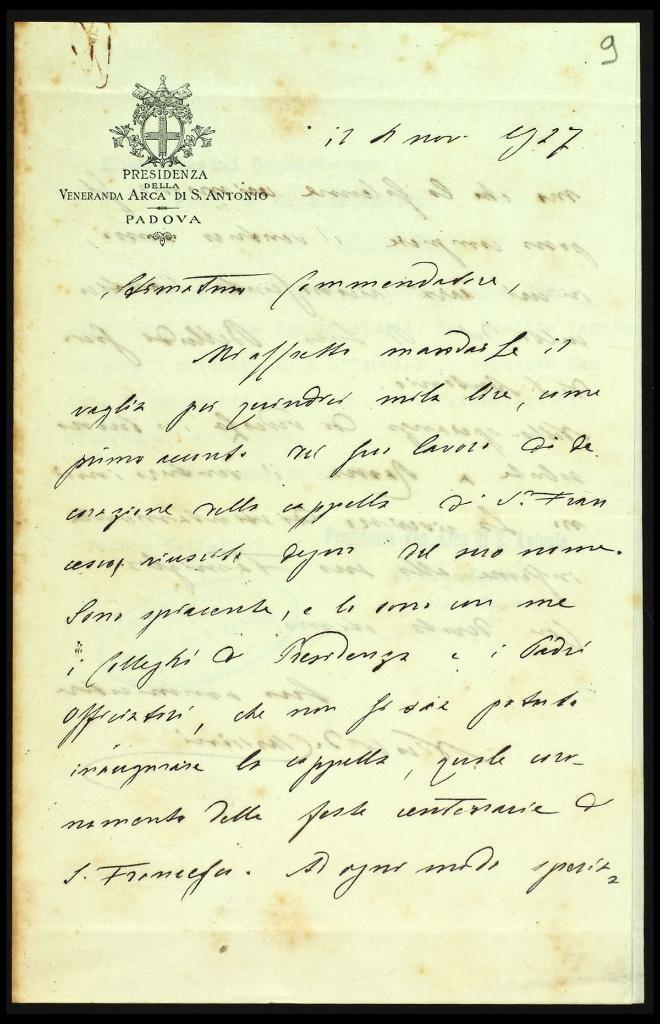 9
il 4 nov. 1927
PRESIDENZA
DELLA
VENERANDA ARCA DI S. ANTONIO
PADOVA
Commendatore,
Mi affretto mandarLe il
vaglia per quindici mila lire, come
primo acconto del suo lavoro di de
corazione della cappella di S. Fran
cesco, riuscita degna del suo nome.
Sono spiacente, e lo sono con me
i Colleghi di Presidenza e i Padri
Officiatori, che non si sia potuto
inaugurare la cappella, quale coro-
namento delle feste centenarie di
S. Francesco. Ad ogni modo